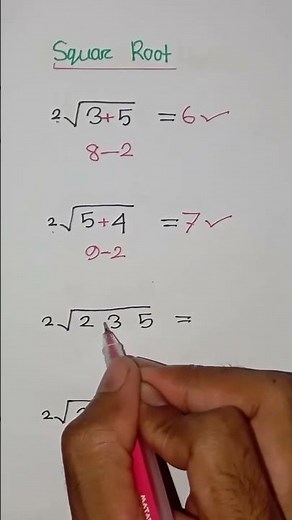 Square Root
2√3+5 = 6✓
8-2
2√5+4 = 7✓
9-2
2√2 3 5 =
2√
MATA